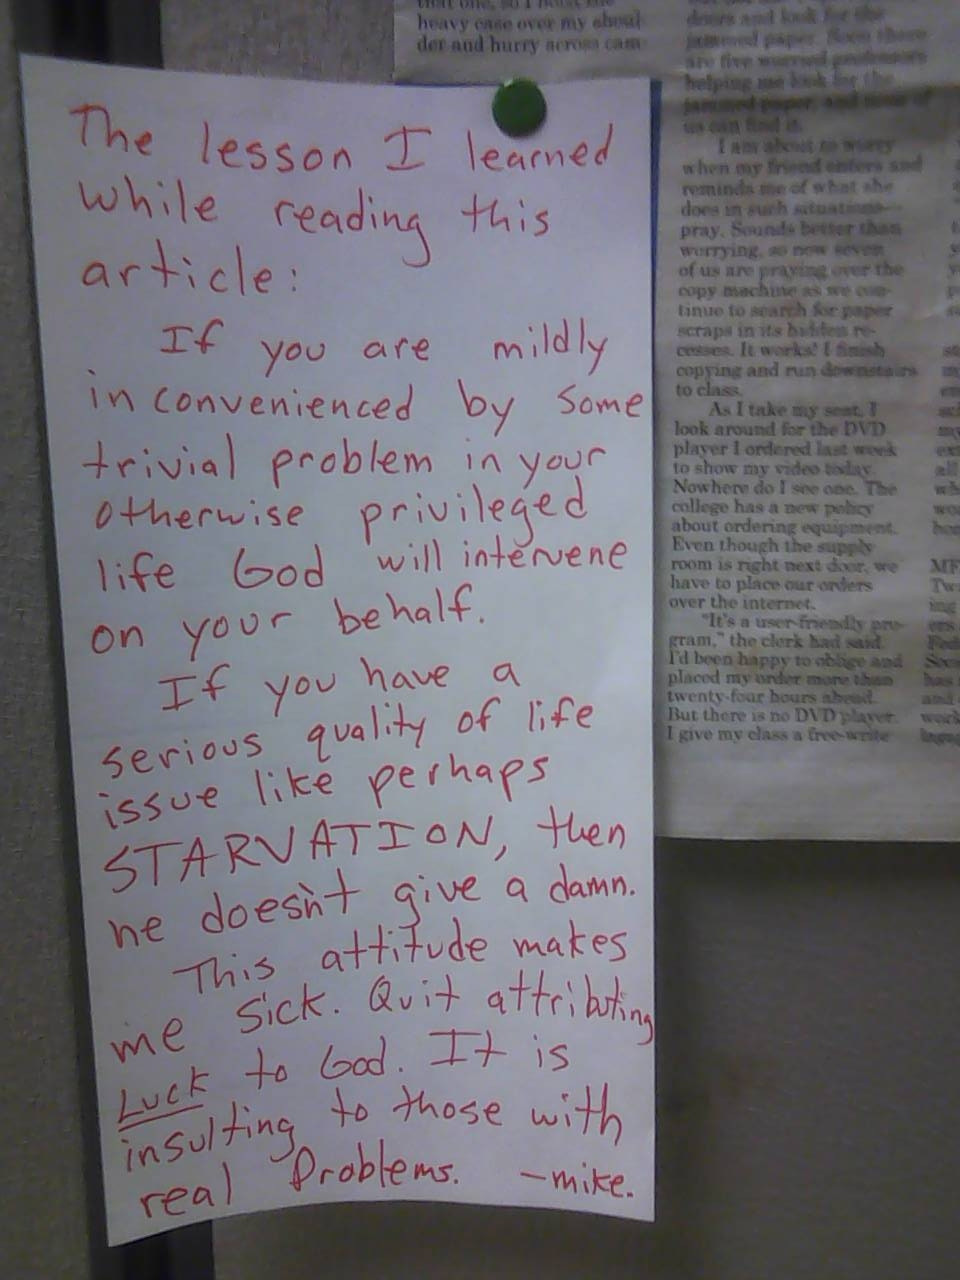 The lesson I learned
while reading this
article:
If you are mildly
inconvenienced by some
trivial problem in your
otherwise privileged
life God will intervene
on your behalf.
If you have a
serious quality of life
issue like perhaps
STARVATION, then
he doesn't give a damn.
This attitude makes
me sick. Quit attributing
Luck to God. It is
insulting to those with
real Problems. -mike.
heavy case over my shoul-
der and hurry across cam-
doors and look for the
jammed paper. Soon there
are five worried professors
helping me look for the
jammed paper, and none of
us can find it.
I am about to worry
when my friend enters and
reminds me of what she
does in such situations—
pray. Sounds better than
worrying, so now seven
of us are praying over the
copy machine as we con-
tinue to search for paper
scraps in its hidden re-
cesses. It works! I finish
copying and run downstairs
to class.
As I take my seat, I
look around for the DVD
player I ordered last week
to show my video today.
Nowhere do I see one. The
college has a new policy
about ordering equipment.
Even though the supply
room is right next door, we
have to place our orders
over the internet.
"It's a user-friendly pro-
gram," the clerk had said.
I'd been happy to oblige and
placed my order more than
twenty-four hours ahead.
But there is no DVD player.
I give my class a free-write